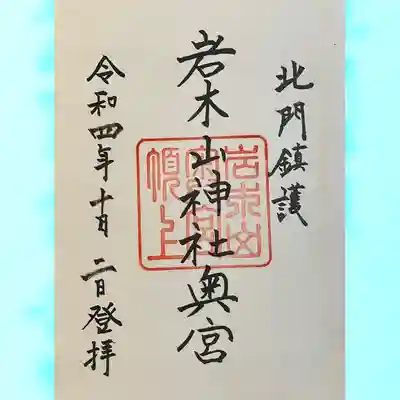 北門鎮護
岩木山神社奥宮
令和四年十月二日登拝
岩木山
奥宮
頂上